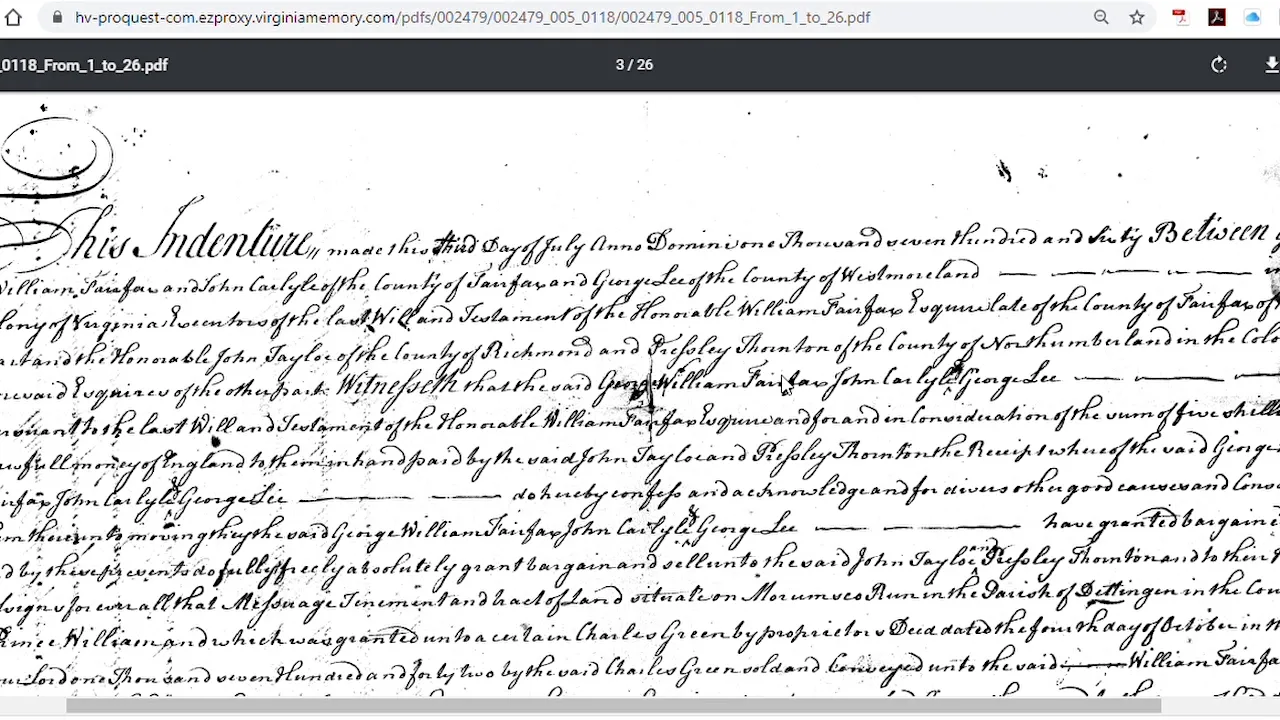 hv-proquest-com.ezproxy.virginiamemory.com/pdfs/002479/002479_005_0118/002479_005_0118_From_1_to_26.pdf
_0118_From_1_to_26.pdf 3 / 26
This Indenture made this third Day of July Anno Domini one Thousand seven Hundred and Sixty Between
William Fairfax and John Carlyle of the County of Fairfax and George Lee of the County of Westmoreland
lony of Virginia Executors of the last Will and Testament of the Honorable William Fairfax Esquire late of the County of Fairfax of
art and the Honorable John Tayloe of the County of Richmond and Pressley Thornton of the County of Northumberland in the Colo
resaid Esquires of the other part Witnesseth that the said George William Fairfax John Carlyle & George Lee
ursuant to the last Will and Testament of the Honorable William Fairfax Esquire and for and in Consideration of the sum of five shill
awfull money of England to them in hand paid by the said John Tayloe and Pressley Thornton the Receipt whereof the said George
airfax John Carlyle & George Lee do hereby confess and acknowledge and for divers other good causes and Cons
em thereunto moving they the said George William Fairfax John Carlyle & George Lee have granted bargaine
d by these presents do fully freely absolutely grant bargain and sell unto the said John Tayloe and Pressley Thornton and to their
ssigns forever all that Messuage Tenement and tract of Land situate on Morumsco Run in the Parish of Dettingen in the Cou
Prince William and which was granted unto a certain Charles Green by proprietors Deed dated the fourth day of October in
our Lord one Thousand seven Hundred and forty two by the said Charles Green sold and Conveyed unto the said William Fairfa